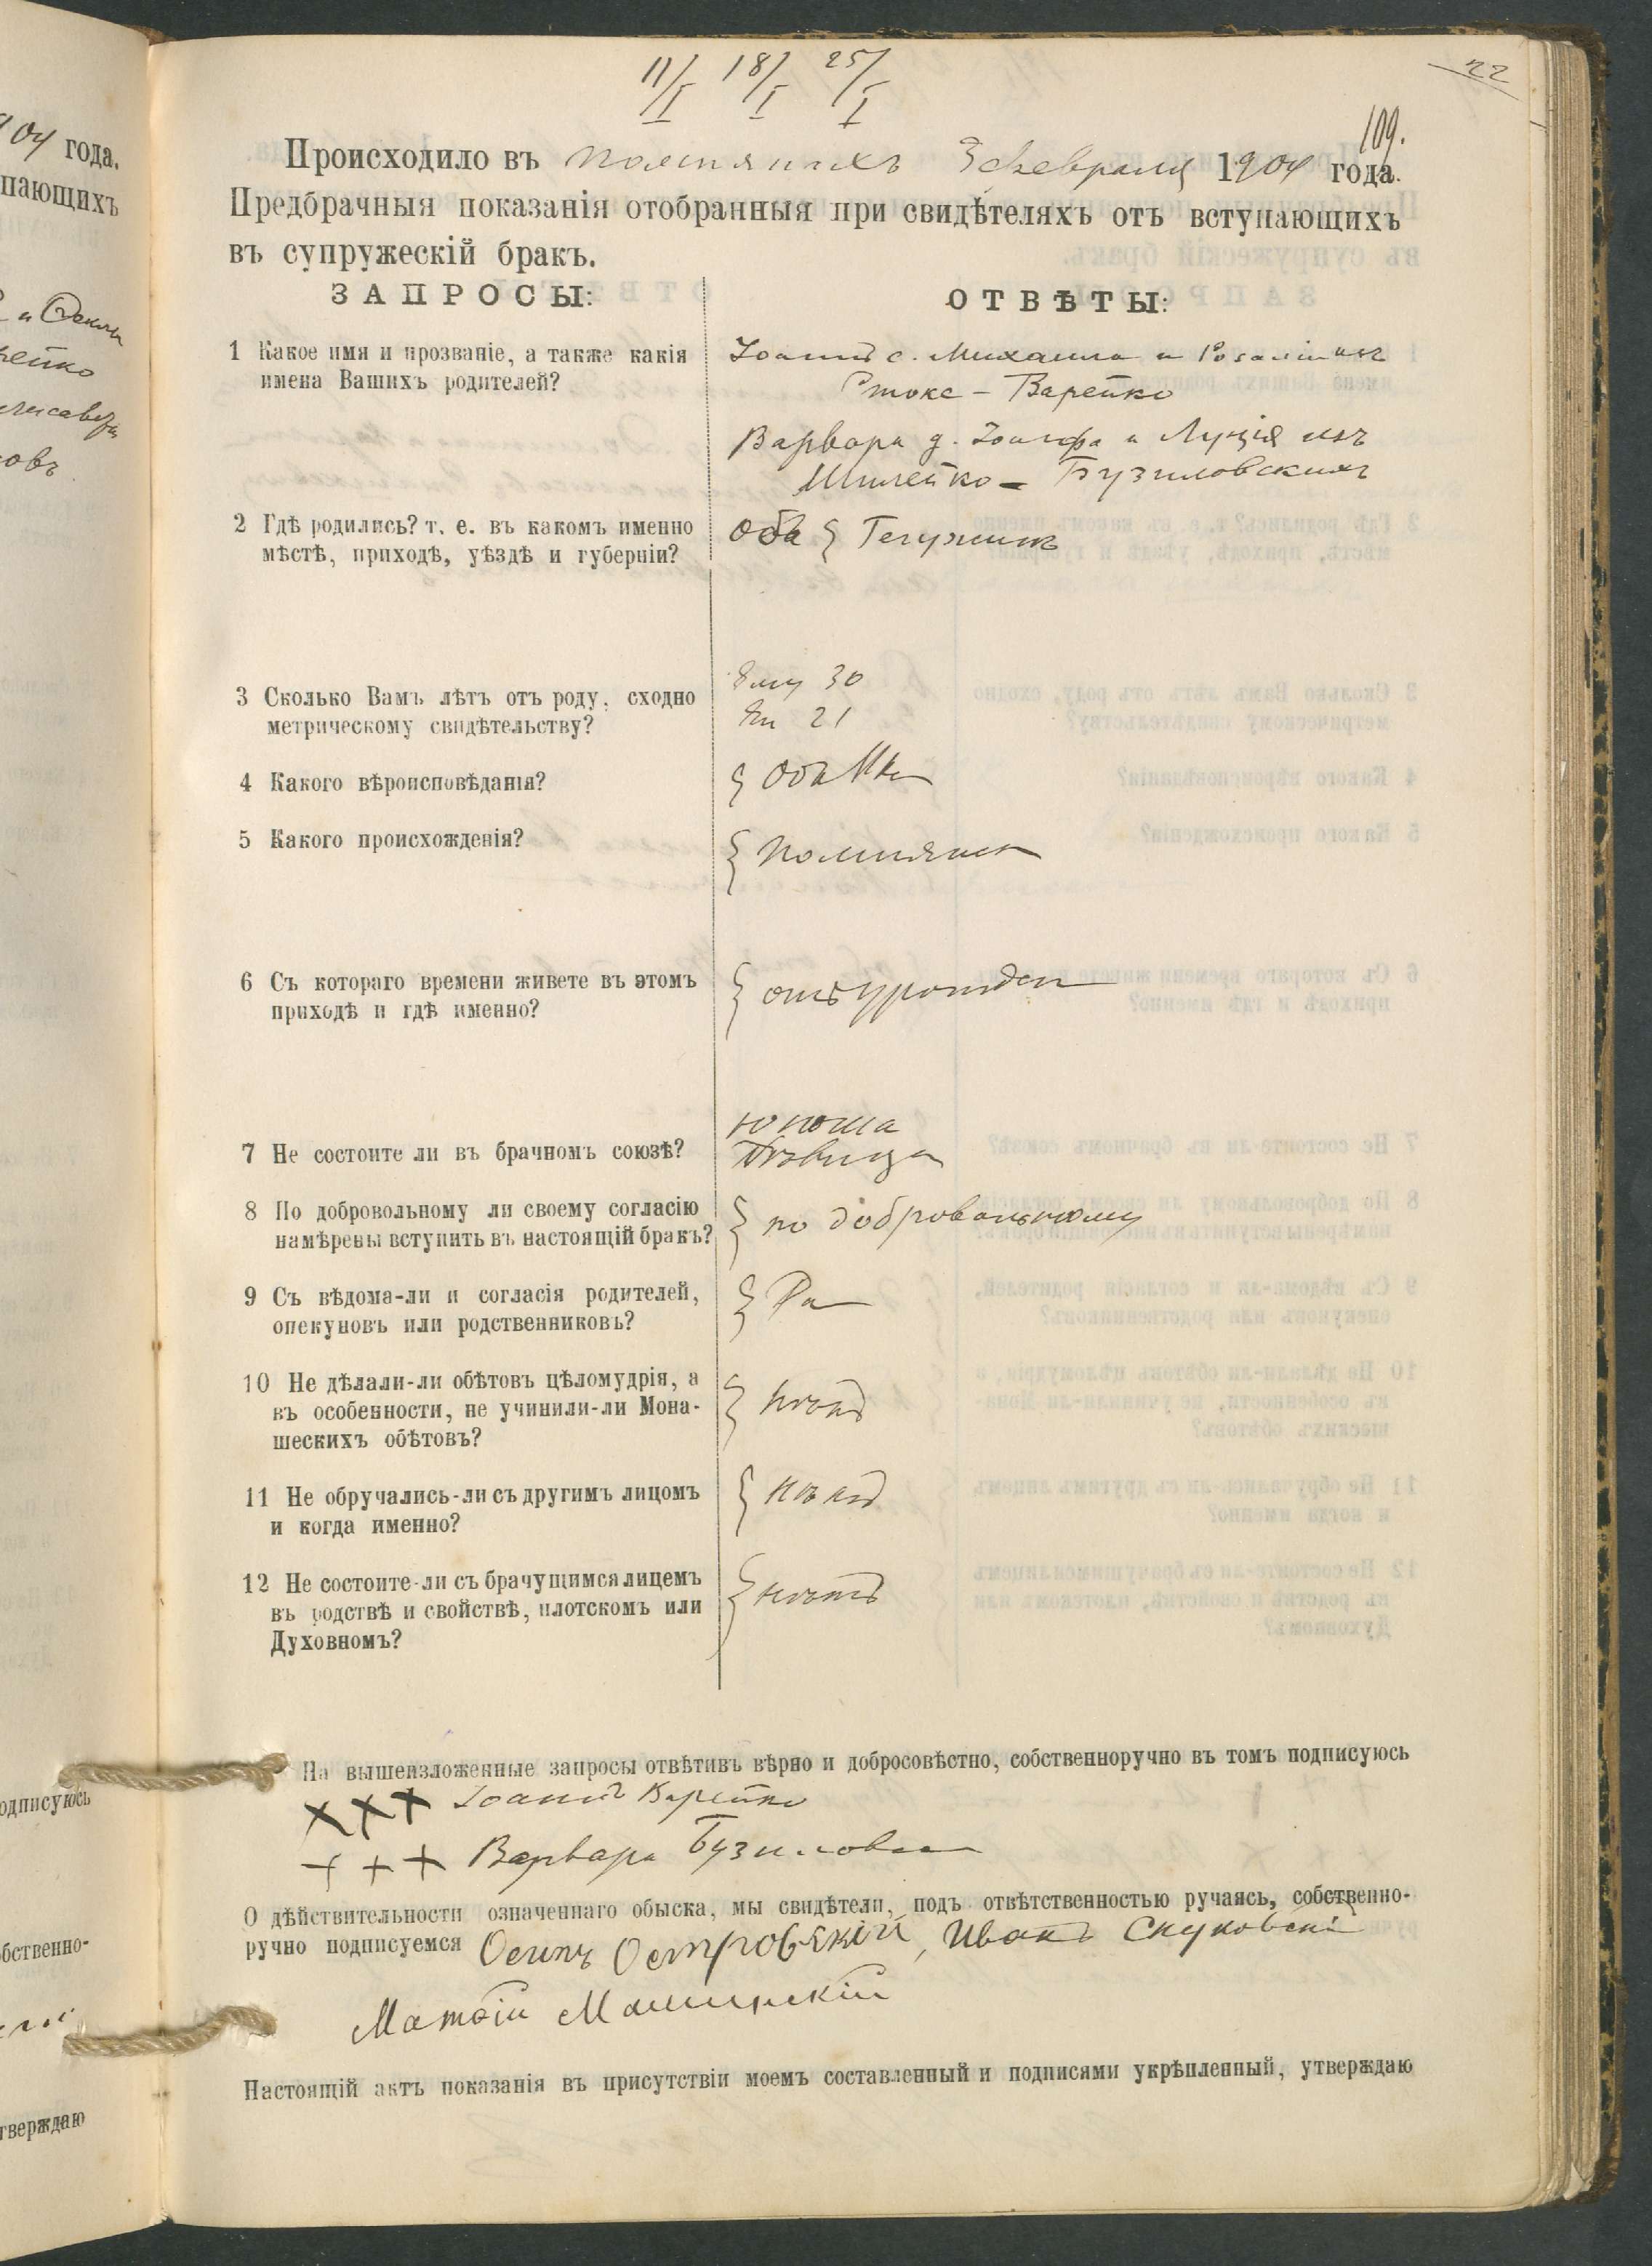 11/I 18/I 25/I
22
109.
Происходило въ 3 февраля 1904 года.
Предбрачныя показанія отобранныя при свидѣтеляхъ отъ вступающихъ
въ супружескій бракъ.
ЗАПРОСЫ:
ОТВѢТЫ:
1 Какое имя и прозваніе, а также какія
имена Вашихъ родителей?
Іоаннъ с. Михаила и Розаліи изъ
Варейко
Варвара д. Іосифа и Луція изъ
Шилейко - Бузиловскихъ
2 Гдѣ родились? т. е. въ какомъ именно
мѣстѣ, приходѣ, уѣздѣ и губерніи?
Оба {
3 Сколько Вамъ лѣтъ отъ роду, сходно
метрическому свидѣтельству?
Ему 30
Ей 21
4 Какого вѣроисповѣданія?
{ Оба
5 Какого происхожденія?
{
6 Съ котораго времени живете въ этомъ
приходѣ и гдѣ именно?
{
7 Не состоите ли въ брачномъ союзѣ?
юноша
дѣвица
8 По добровольному ли своему согласію
намѣрены вступить въ настоящій бракъ?
{ по добровольному
9 Съ вѣдома-ли и согласія родителей,
опекуновъ или родственниковъ?
{ Да
10 Не дѣлали-ли обѣтовъ цѣломудрія, а
въ особенности, не учинили-ли Мона-
шескихъ обѣтовъ?
{ нѣтъ
11 Не обручались-ли съ другимъ лицомъ
и когда именно?
{ нѣтъ
12 Не состоите-ли съ брачущимся лицемъ
въ родствѣ и свойствѣ, плотскомъ или
Духовномъ?
{ нѣтъ
На вышеизложенные запросы отвѣтивъ вѣрно и добросовѣстно, собственноручно въ томъ подписуюсь
XXX Іоаннъ Варейко
+++ Варвара Бузиловска
О дѣйствительности означеннаго обыска, мы свидѣтели, подъ отвѣтственностью ручаясь, собственно-
ручно подписуемся Осипъ Островскій, Иванъ
Матвій
Настоящій актъ показанія въ присутствіи моемъ составленный и подписями укрѣпленный, утверждаю